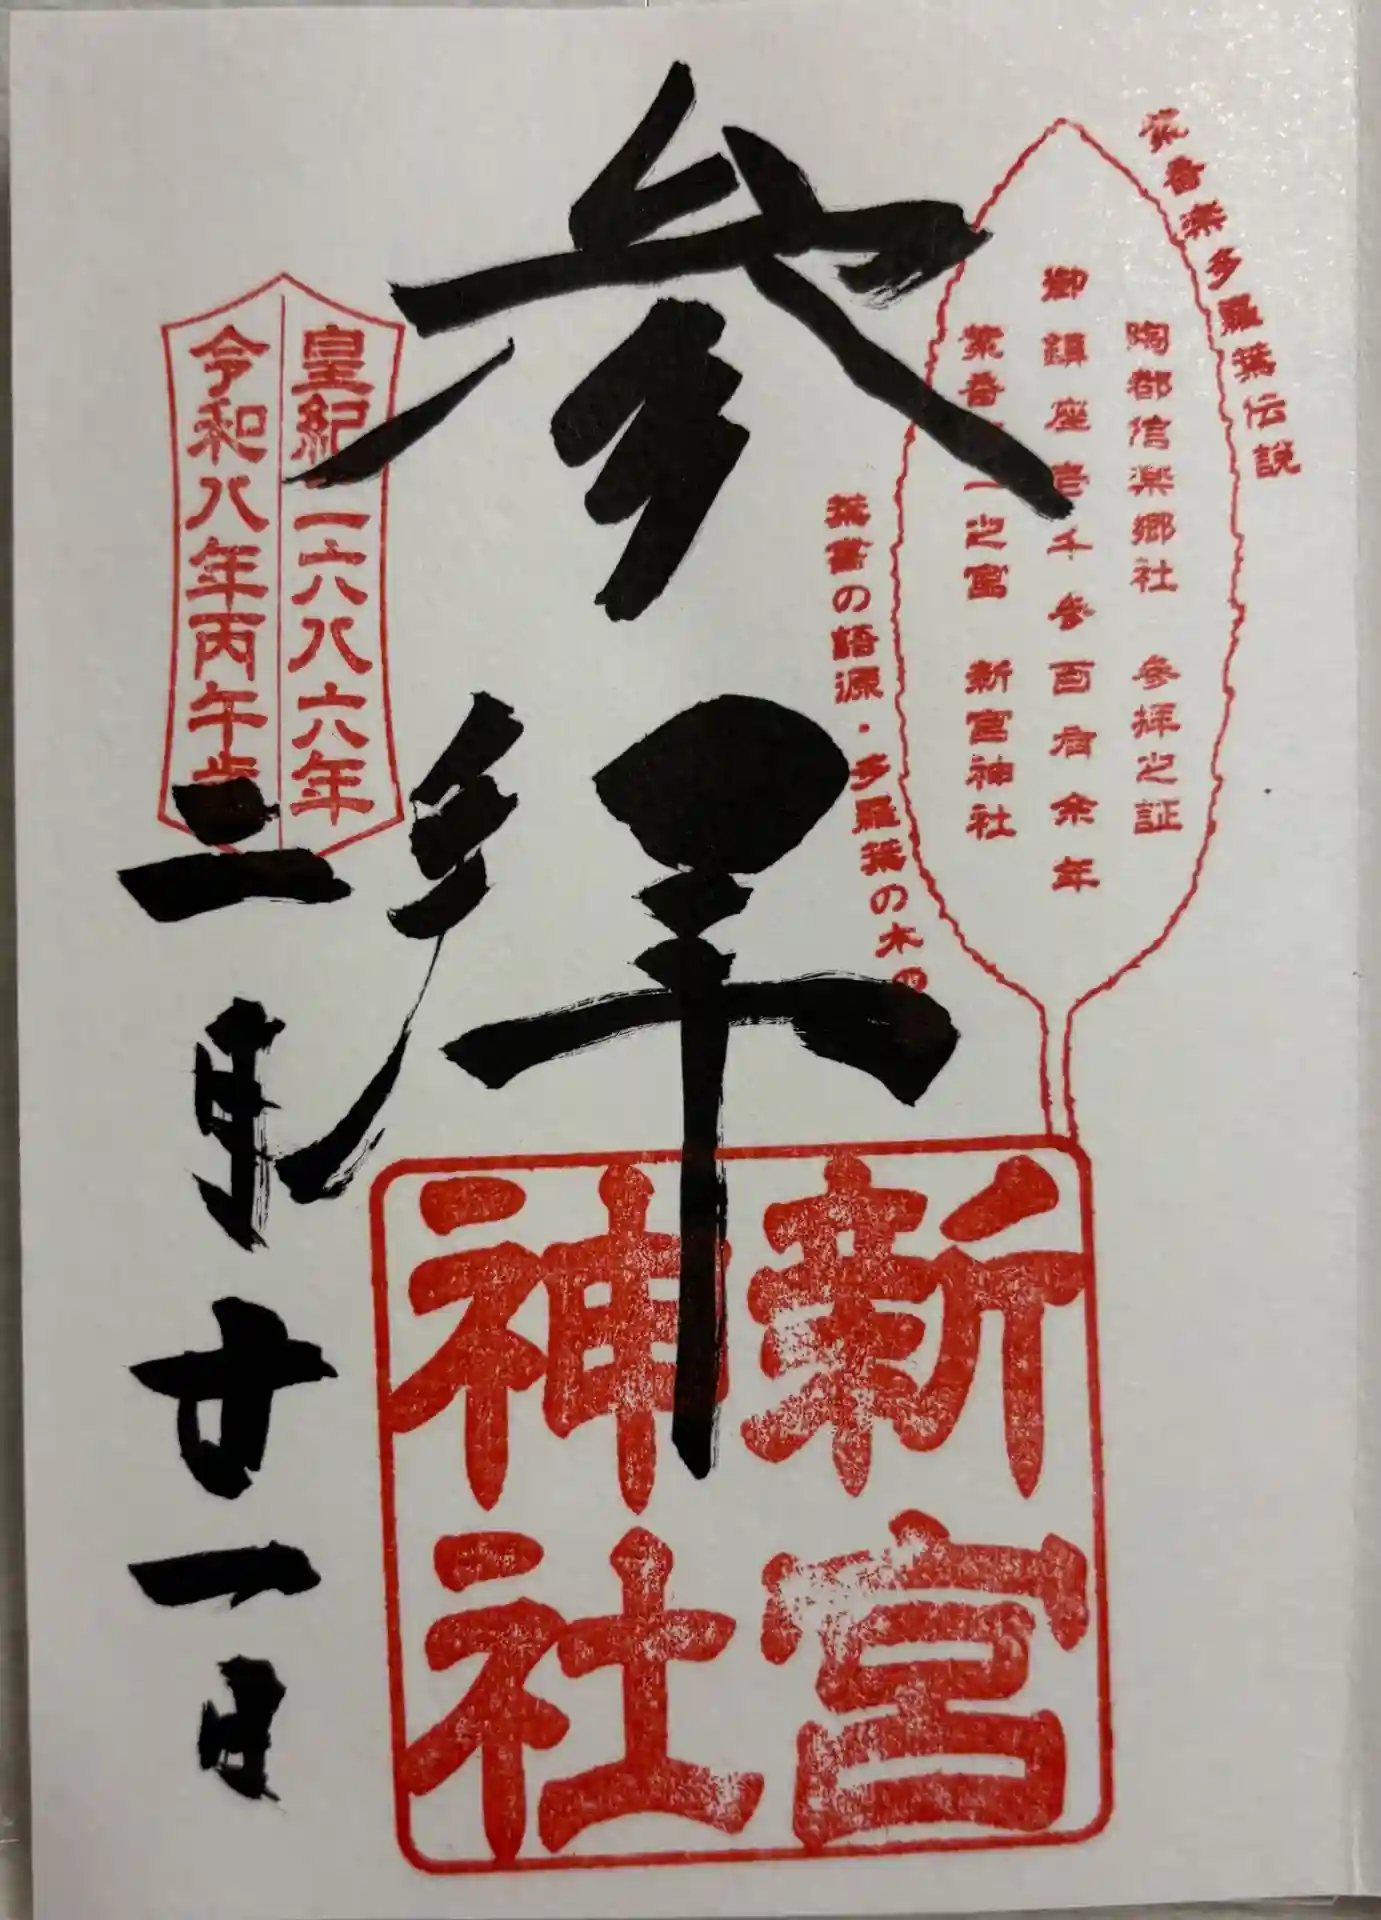 紫香楽多羅葉伝説
陶都信楽郷社 参拝之証
御鎮座壱千参百有余年
紫香 一之宮 新宮神社
葉書の語源・多羅葉の木の
参拝
新宮
神社
皇紀 六八六年
令和八年丙午歳
二月廿一日